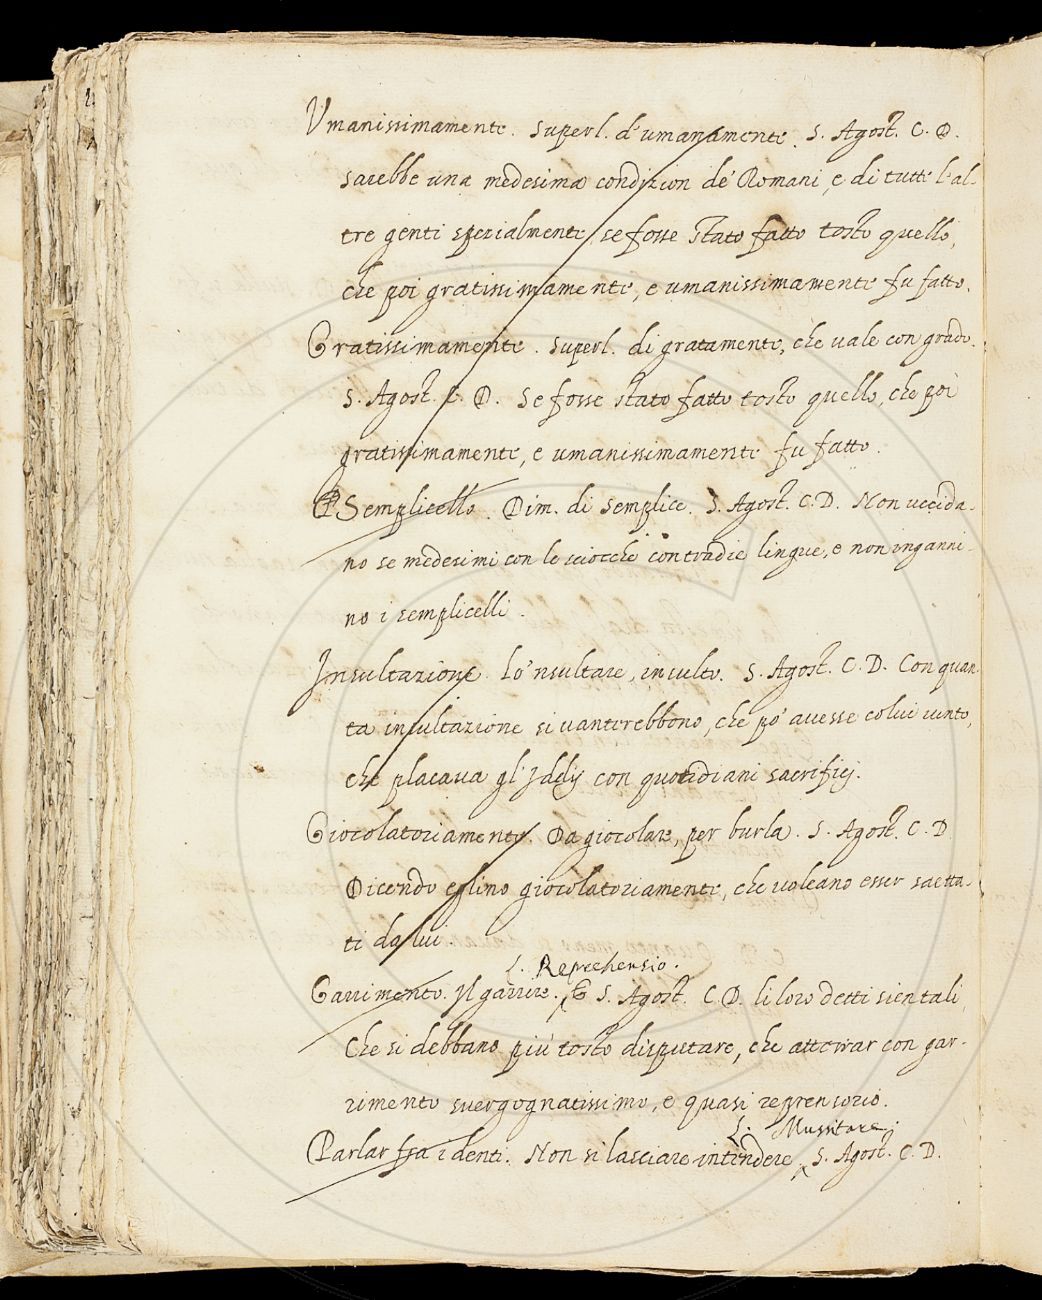 Umanissimamente. Superl. d'umanamente. S. Agost. C. D.
sarebbe una medesima condizion de' Romani, e di tutte l'al-
tre genti spezialmente, se fosse stato fatto tosto quello,
che poi gratissimamente, e umanissimamente fu fatto.
Gratissimamente. Superl. di gratamente, che vale con grado.
S. Agost. C. D. Se fosse stato fatto tosto quello, che poi
gratissimamente, e umanissimamente fu fatto.
Semplicello. Dim. di Semplice. S. Agost. C. D. Non uccida-
no se medesimi con le sciocche contradie lingue, e non inganni-
no i semplicelli.
Insultazione. Lo 'nsultare, insulto. S. Agost. C. D. Con quan-
ta insultazione si vanterebbono, che po' avesse colui vinto,
che placava gl'Iddij con quotidiani sacrifizj.
Giocolatoriamente. Da giocolare, per burla. S. Agost. C. D.
Dicendo eglino giocolatoriamente, che voleano esser saetta-
ti da lui.
L. Reprehensio.
Garrimento. Il garrire. S. Agost. C. D. li loro detti sien tali
Che si debbano più tosto disputare, che atterrar con gar-
rimento svergognatissimo, e quasi reprensorio.
L. Mussitare.
Parlar fra i denti. Non si lasciare intendere. S. Agost. C. D.